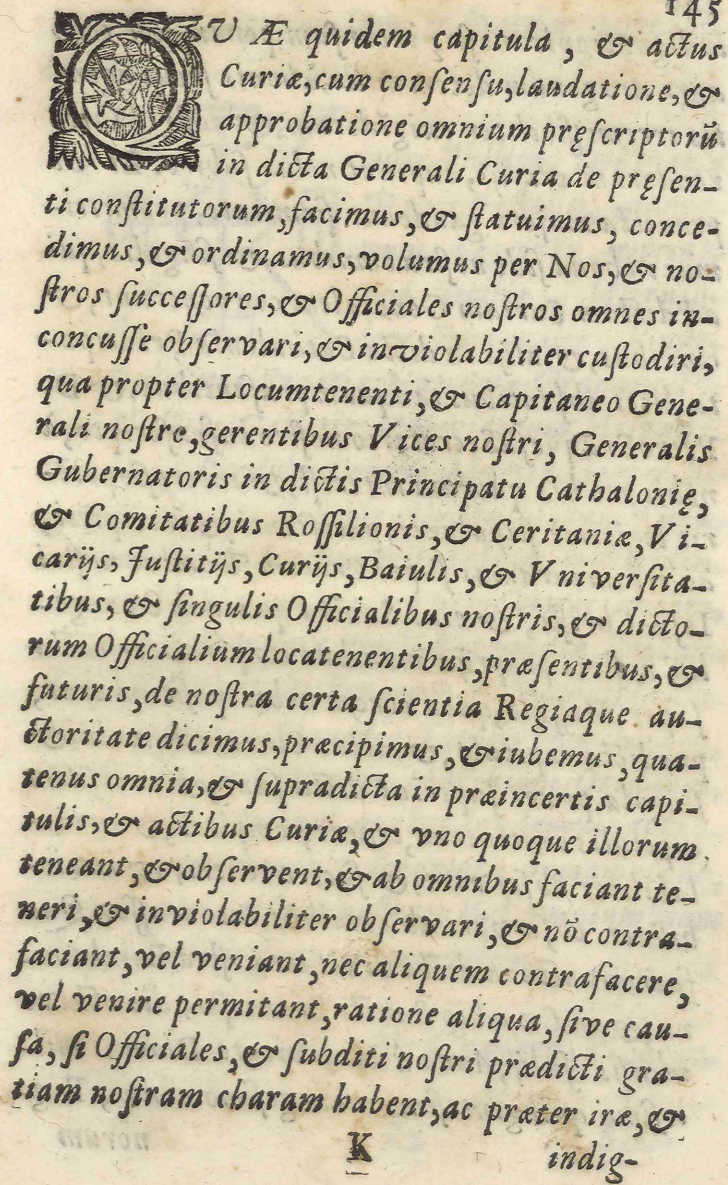 145
QVÆ quidem capitula, & actus
Curiæ, cum consensu, laudatione, &
approbatione omnium pręscriptorũ
in dicta Generali Curia de pręsen-
ti constitutorum, facimus, & statuimus, conce-
dimus, & ordinamus, volumus per Nos, & no-
stros successores, & Officiales nostros omnes in-
concusse observari, & inviolabiliter custodiri,
qua propter Locumtenenti, & Capitaneo Gene-
rali nostre, gerentibus Vices nostri, Generalis
Gubernatoris in dictis Principatu Cathalonię,
& Comitatibus Rossilionis, & Ceritaniæ, Vi-
carijs, Justitijs, Curijs, Baiulis, & Vniversita-
tibus, & singulis Officialibus nostris, & dicto-
rum Officialium locatenentibus, præsentibus, &
futuris, de nostra certa scientia Regiaque au-
ctoritate dicimus, præcipimus, & iubemus, qua-
tenus omnia, & supradicta in præincertis capi-
tulis, & actibus Curiæ, & vno quoque illorum
teneant, & observent, & ab omnibus faciant te-
neri, & inviolabiliter observari, & nõ contra-
faciant, vel veniant, nec aliquem contrafacere,
vel venire permitant, ratione aliqua, sive cau-
sa, si Officiales, & subditi nostri prædicti gra-
tiam nostram charam habent, ac præter iræ, &
K
indig-